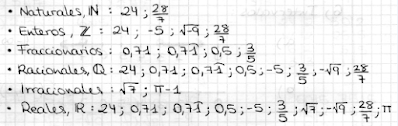 • Naturales, ℕ : 24 ; 28/7
• Enteros, ℤ : 24 ; -5 ; √-9 ; 28/7
• Fraccionarios : 0,71 ; 0,7̂1 ; 0,5 ; 3/5
• Racionales, ℚ : 24 ; 0,71 ; 0,7̂1 ; 0,5 ; -5 ; 3/5 ; -√9 ; 28/7
• Irracionales : √7 ; π-1
• Reales, ℝ : 24 ; 0,71 ; 0,7̂1 ; 0,5 ; -5 ; 3/5 ; √7 ; -√9 ; 28/7 ; π